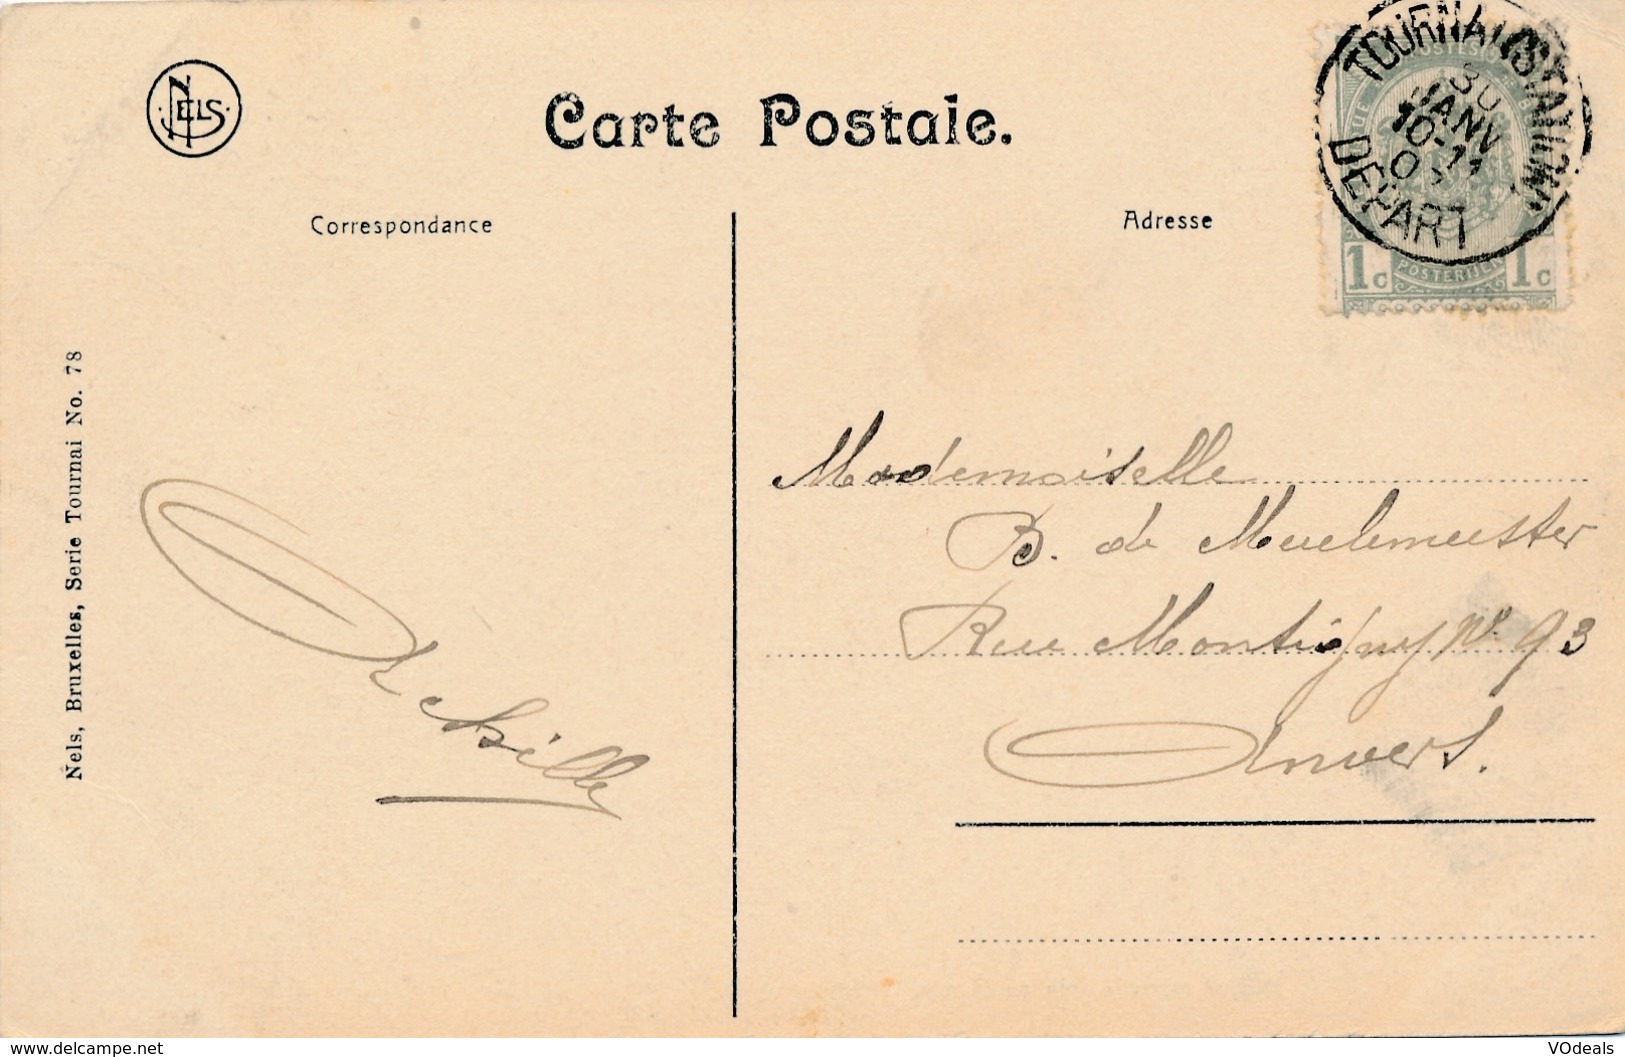 NELS
Carte Postale.
Correspondance
Adresse
TOURNAI (STATION)
30
JANV
10-11
DEPART
1c POSTERIJEN 1c
Nels, Bruxelles, Serie Tournai No. 78
Achille
Mademoiselle
B. de Meulemeester
Rue Montigny No. 93
Anvers.
www.delcampe.net
VOdeals